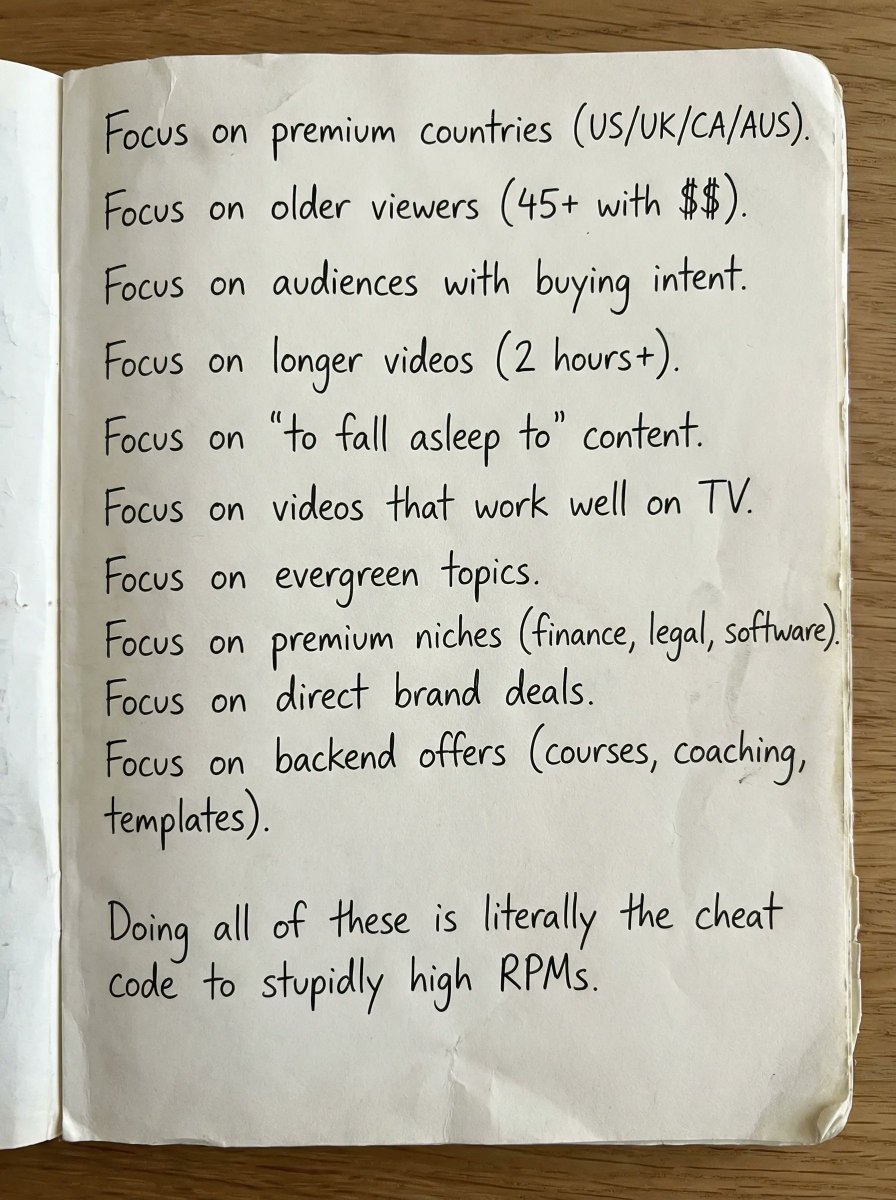 Focus on premium countries (US/UK/CA/AUS).
Focus on older viewers (45+ with $$).
Focus on audiences with buying intent.
Focus on longer videos (2 hours+).
Focus on “to fall asleep to” content.
Focus on videos that work well on TV.
Focus on evergreen topics.
Focus on premium niches (finance, legal, software).
Focus on direct brand deals.
Focus on backend offers (courses, coaching,
templates).
Doing all of these is literally the cheat
code to stupidly high RPMs.